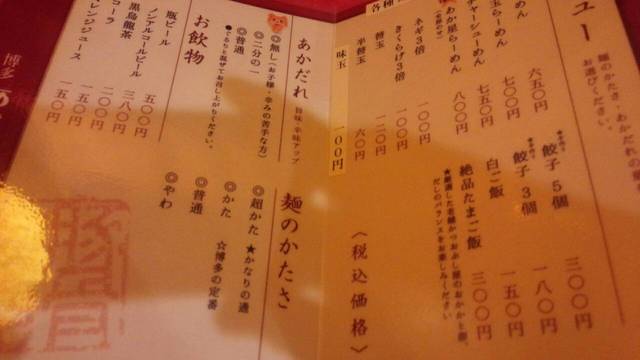 ュー
麺のかたさ・あかだれの
お選びください。
めん
六五〇円
玉らーめん
七〇〇円
チャーシューめん
七五〇円
あか星らーめん
八〇〇円
ネギ3倍
一〇〇円
きくらげ3倍
一〇〇円
替玉
一二〇円
半替玉
六〇円
味玉
一〇〇円
各種
餃子 5個
三〇〇円
餃子 3個
一八〇円
白ご飯
一五〇円
絶品たまご飯
三〇〇円
だしのバランスをお楽しみください
〈税込価格〉
あかだれ 旨味・辛味アップ
◎無し(お子様・辛みの苦手な方)
◎二分の一
◎普通
●でるりと混ぜてお召し上がりください。
麺のかたさ
◎超かた ★かなりの通
◎かた ☆博多の定番
◎普通
◎やわ
お飲物
瓶ビール
五〇〇円
ノンアルコールビール
三八〇円
黒烏龍茶
二〇〇円
コーラ
一五〇円
レンジジュース
一五〇円
博多